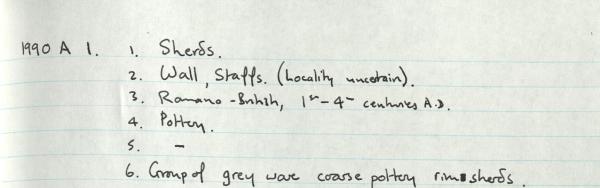 1990 A 1. 1. Sherds.
2. Wall, Staffs. (Locality uncertain).
3. Romano-British, 1st-4th centuries A.D.
4. Pottery.
5. -
6. Group of grey ware coarse pottery rim sherds.